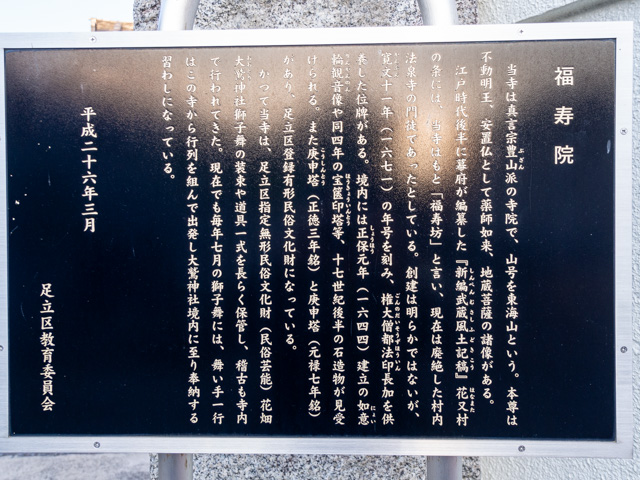 福寿院
当寺は真言宗豊山派の寺院で、山号を東海山という。本尊は
不動明王、安置仏として薬師如来、地蔵菩薩の諸像がある。
江戸時代後半に幕府が編纂した『新編武蔵風土記稿』花又村
の条には、当寺はもと「福寿坊」と言い、現在は廃絶した村内
法泉寺の門徒であったとしている。創建は明らかではないが、
寛文十一年（一六七一）の年号を刻み、権大僧都法印長加を供
養した位牌がある。境内には正保元年（一六四四）建立の如意
輪観音像や同四年の宝篋印塔等、十七世紀後半の石造物が見受
けられる。また庚申塔（正徳三年銘）と庚申塔（元禄七年銘）
があり、足立区登録有形民俗文化財になっている。
かつて当寺は、足立区指定無形民俗文化財（民俗芸能）花畑
大鷲神社獅子舞の装束や道具一式を長らく保管し、稽古も寺内
で行われてきた。現在でも毎年七月の獅子舞には、舞い手一行
はこの寺から行列を組んで出発し大鷲神社境内に至り奉納する
習わしになっている。
平成二十六年三月
足立区教育委員会